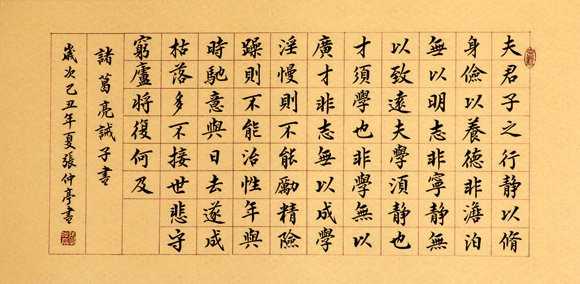 夫君子之行靜以脩
身儉以養德非澹泊
無以明志非寧靜無
以致遠夫學須靜也
才須學也非學無以
廣才非志無以成學
淫慢則不能勵精險
躁則不能治性年與
時馳意與日去遂成
枯落多不接世悲守
窮廬將復何及
諸葛亮誡子書
歲次己丑年夏張仲亭書